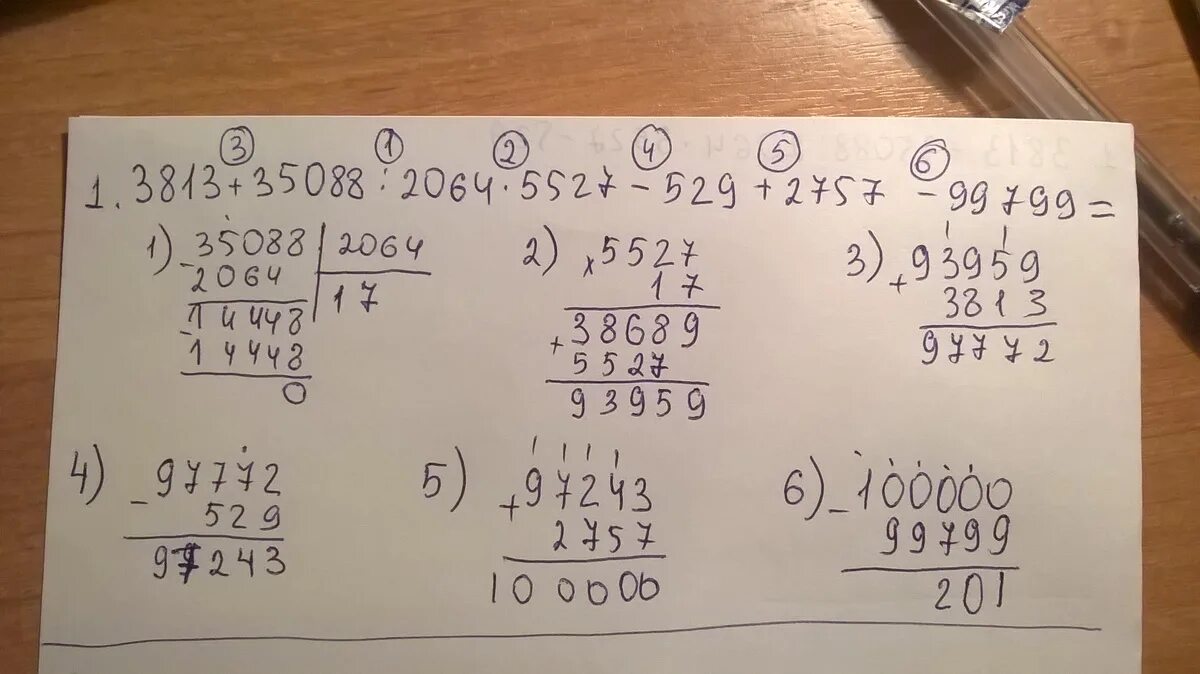 ③ ① ② ④ ⑤ ⑥
1. 3813 + 35088 : 2064 · 5527 - 529 + 2757 - 99799 =
1) - 35088 | 2064
2064 | 17
- 14448
14448
0
2) x 5527
17
+ 38689
5527
93959
3) + 93959
3813
97772
4) - 97772
529
97243
5) 1 1 1 1
+ 97243
2757
100000
6) - 100000
99799
201